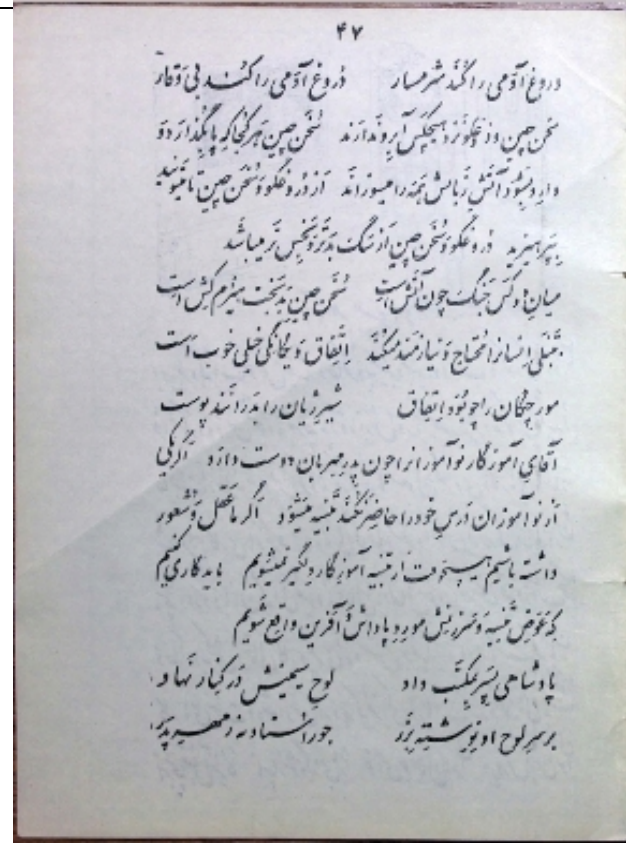 ۴۷
دروغ آدمی را کند شرمسار دروغ آدمی را کند بی وقار
سخن چین و دروغگو نزد هیچکس آبرو ندارند سخن چین هر کجا که پا بگذارد دو
میشود آتش زبانش همه را میسوزاند از دروغگو و سخن چین تا میتوانید
بپرهیزید دروغگو و سخن چین از سگ بدتر و نجس تر میباشد
میان دو کس جنگ چون آتش است سخن چین بدبخت هیزم کش است
تنبلی انسان را محتاج و نیازمند میکند اتفاق و یگانگی خیلی خوب است
مورچگان را چو بود اتفاق شیر ژیان را بدرانند پوست
آقای آموزگار نوآموزان را چون پدر مهربان دوست دارد اگر یکی
از نوآموزان درس خود را حاضر نکند تنبیه میشود اگر ما عقل و شعور
داشته باشیم هیچوقت از تنبیه آموزگار دلگیر نمیشویم باید کاری کنیم
که عوض تنبیه و سرزنش مورد پاداش آفرین واقع شویم
پادشاهی پسر بمکتب داد لوح سیمینش در کنار نهاد
بر سر لوح او نوشته بزر جور استاد به ز مهر پدر